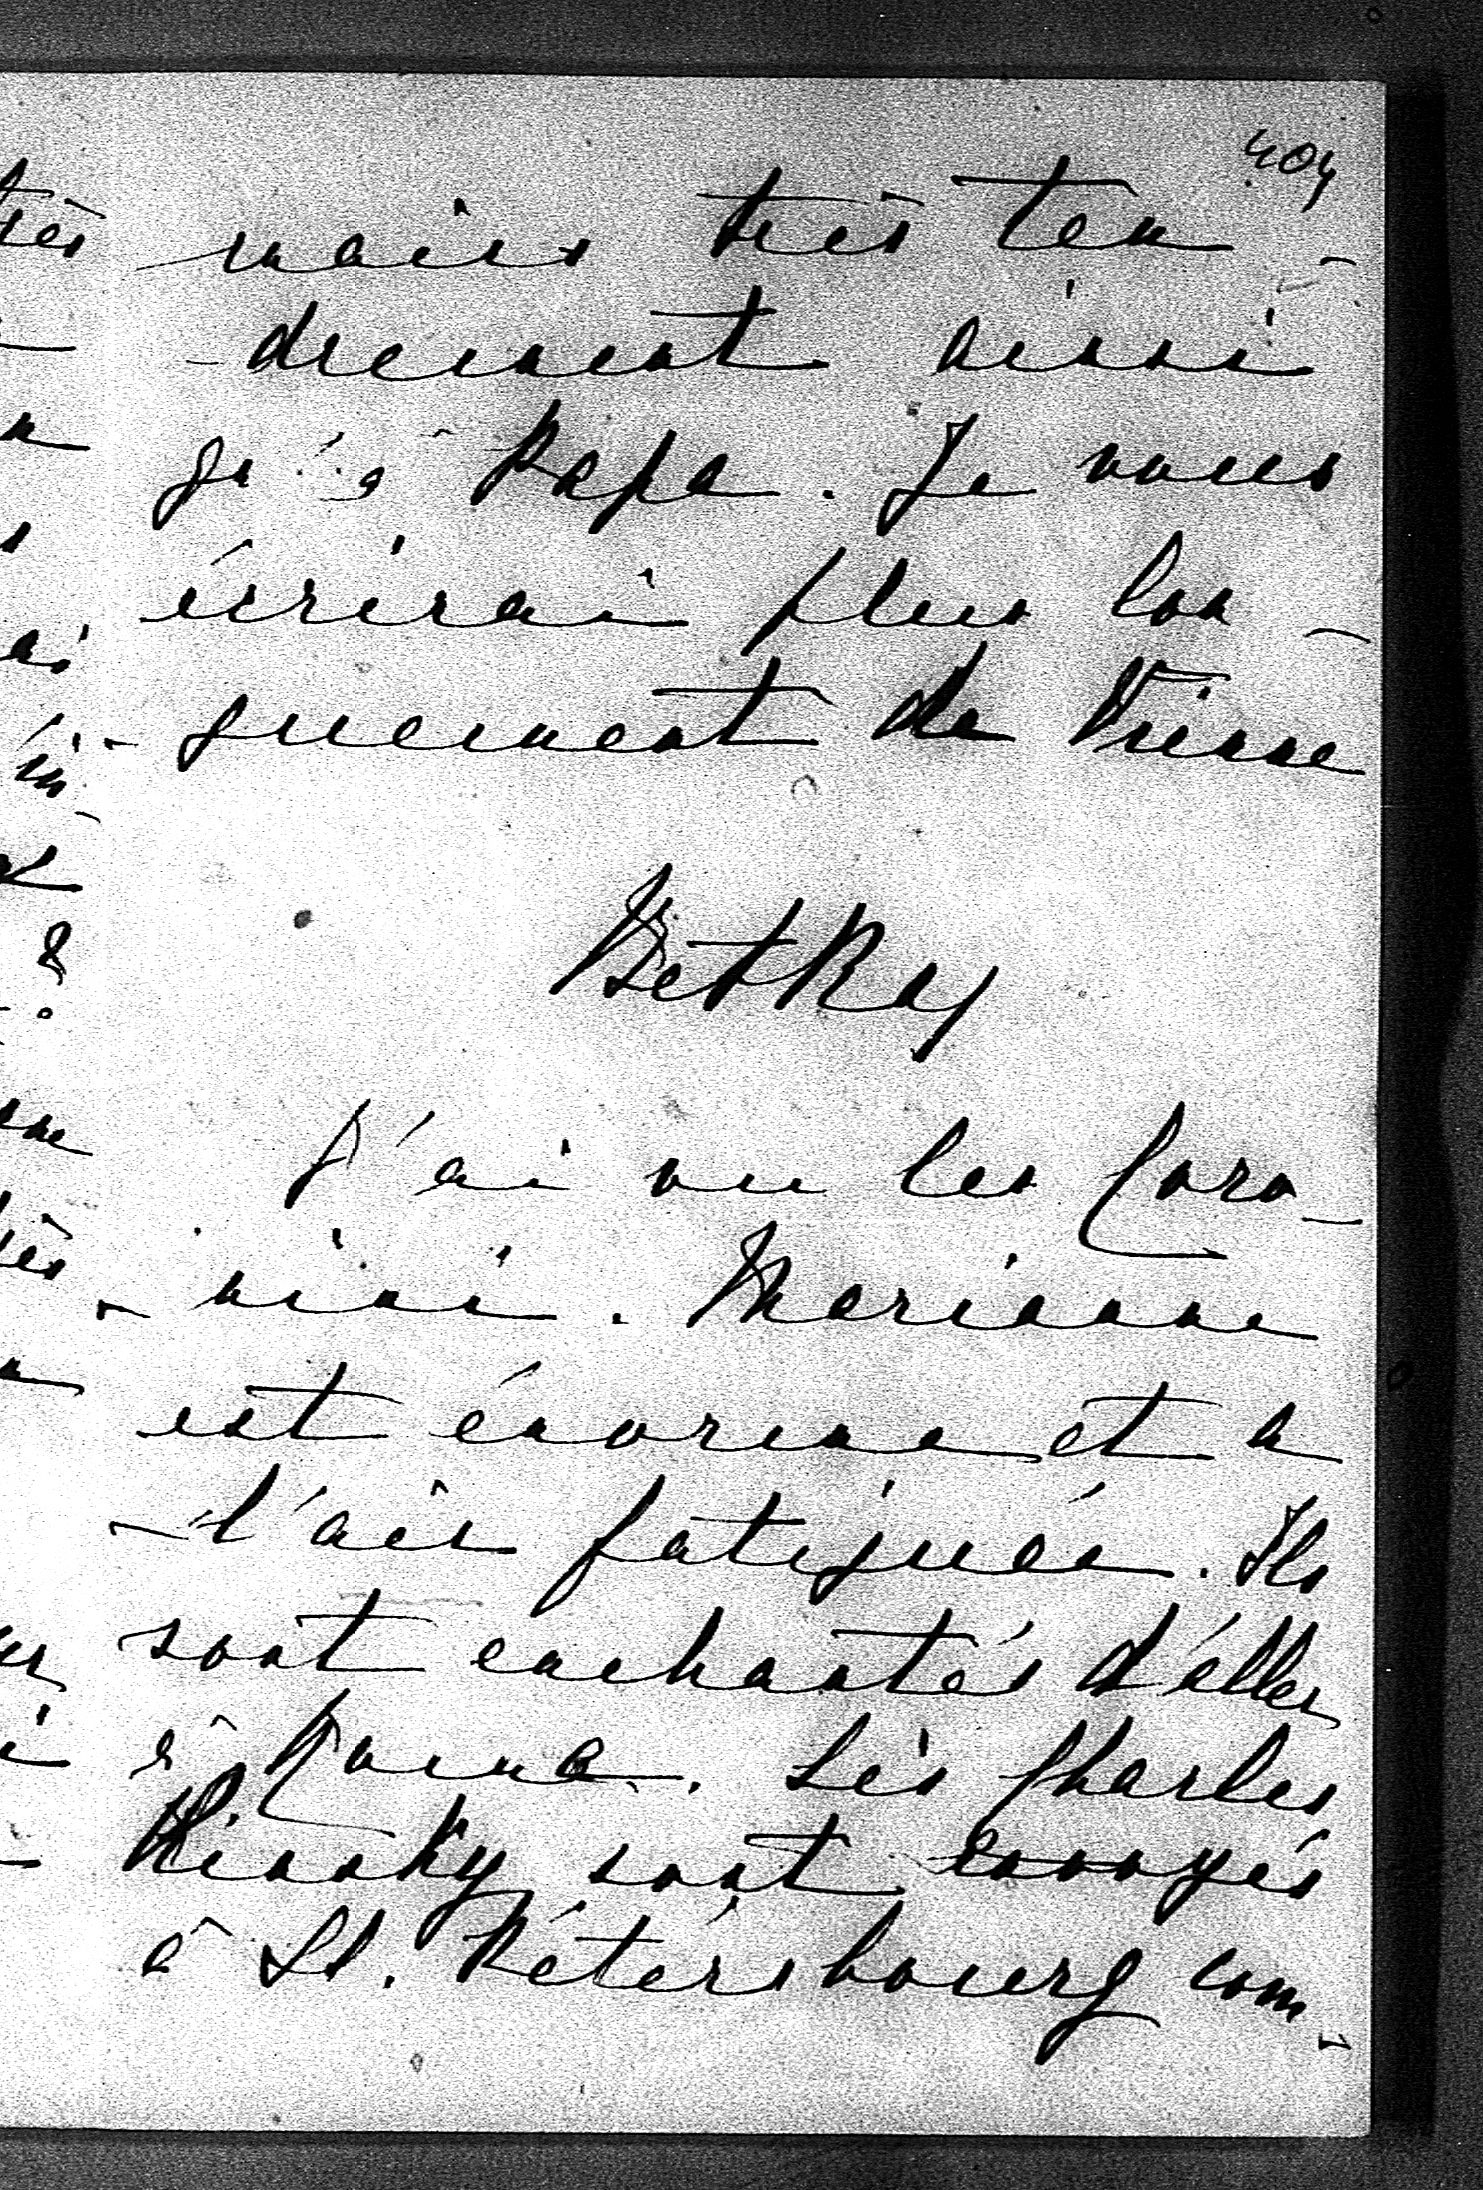 404
mains très ten-
-drement ainsi
qu'à Papa. Je vous
écrirai plus lon-
-guement de Vienne
Betka
J'ai vu les Coro-
-nini. Marianne
est énorme et a
l'air fatiguée. Ils
sont enchantés d'aller
à Rome. Les Charles
Kinsky sont envoyés
à St. Pétersbourg com-